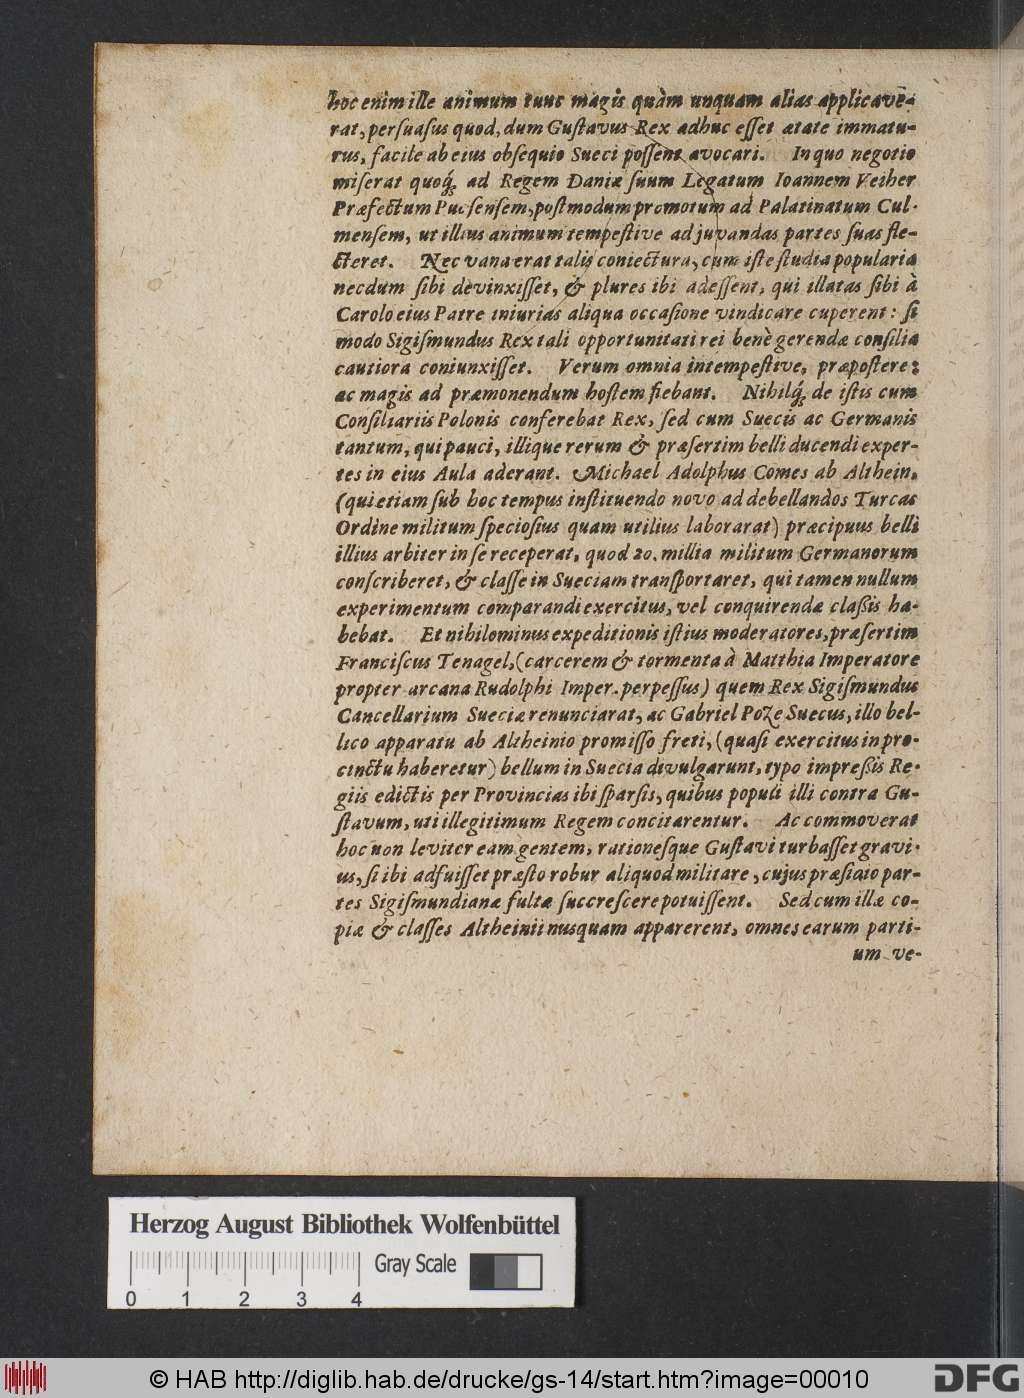 hoc enim ille animum tunc magis quàm unquam alias applicavē-
rat, perſuaſus quod, dum Guſtavus Rex adhuc eſſet ætate immatu-
rus, facile ab eius obſequio Sueci poſſent avocari. In quo negotio
miſerat quoq́; ad Regem Daniæ ſuum Legatum Ioannem Veiher
Præfectum Pucſenſem, poſtmodum promotum ad Palatinatum Cul-
menſem, ut illius animum tempeſtive ad juvandas partes ſuas fle-
cteret. Nec vana erat talis coniectura, cum iſte ſtudia popularia
necdum ſibi devinxiſſet, & plures ibi adeſſent, qui illatas ſibi à
Carolo eius Patre iniurias aliqua occaſione vindicare cuperent: ſi
modo Sigiſmundus Rex tali opportunitati rei benè gerendæ conſilia
cautiora coniunxiſſet. Verum omnia intempeſtive, præpoſtere;
ac magis ad præmonendum hoſtem fiebant. Nihilq́; de iſtis cum
Conſiliariis Polonis conferebat Rex, ſed cum Suecis ac Germanis
tantum, qui pauci, illique rerum & præſertim belli ducendi exper-
tes in eius Aula aderant. Michael Adolphus Comes ab Althein,
(qui etiam ſub hoc tempus inſtituendo novo ad debellandos Turcas
Ordine militum ſpecioſius quam utilius laborarat) præcipuus belli
illius arbiter in ſe receperat, quod 20. millia militum Germanorum
conſcriberet, & claſſe in Sueciam tranſportaret, qui tamen nullum
experimentum comparandi exercitus, vel conquirendæ claßis ha-
bebat. Et nihilominus expeditionis iſtius moderatores, præſertim
Franciſcus Tenagel, (carcerem & tormenta à Matthia Imperatore
propter arcana Rudolphi Imper. perpeſſus) quem Rex Sigiſmundus
Cancellarium Sueciæ renunciarat, ac Gabriel Poze Suecus, illo bel-
lico apparatu ab Altheinio promiſſo freti, (quaſi exercitus in pro-
cinctu haberetur) bellum in Suecia divulgarunt, typo impreßis Re-
giis edictis per Provincias ibi ſparſis, quibus populi illi contra Gu-
ſtavum, uti illegitimum Regem concitarentur. Ac commoverat
hoc non leviter eam gentem, rationeſque Guſtavi turbaſſet gravi-
us, ſi ibi adfuiſſet præſto robur aliquod militare, cujus præſidio par-
tes Sigiſmundianæ fultæ ſuccreſcere potuiſſent. Sed cum illæ co-
piæ & claſſes Altheinii nusquam apparerent, omnes earum parti-
um ve-
Herzog August Bibliothek Wolfenbüttel
Gray Scale
0 1 2 3 4
© HAB http://diglib.hab.de/drucke/gs-14/start.htm?image=00010
DFG